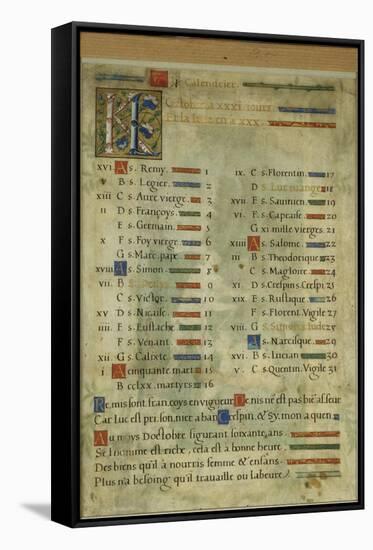 Le Calendrier
Octobre a xxxi jours
Et la lune en a xxx.
xvi A s. Remy. 1
v B s. Legier. 2
xiii C s. Aure vierge. 3
ii D s. Françoys. 4
E s. Germain. 5
x F s. Foy vierge. 6
G s. Marc. pape. 7
xviii A s. Simon. 8
vii B s. Denys 9
C s. Victor. 10
xv D s. Nicaise. 11
iiii E s. Eustache 12
F s. Venant. 13
xii G s. Calixte. 14
i A cinquante mart. 15
B cclxx. martyrs. 16
ix. C s. Florentin. 17
D s. Luc 18
xvii E s. Saunien. 19
vi. F s. Capraise. 20
G xi mille vierges. 21
xiiii A s. Salome. 22
iii B s. Theodorique 23
C s. Magloire. 24
xi D s. Crespin s. Crespi. 25
xix E s. Rustique 26
F s. Florent. Vigile 27
viii. G s. Simon s. Jude 28
A s. Narcisque. 29
xvi. B s. Lucian 30
v. C s. Quentin. Vigile 31
Remis sont francoys en vigueur Denis ne est pas bieasseur
Car luc est prisonier a han Crespin, & symon a quen
Au moys Doctobre figurant soixante ans
Se l'homme est riche, cela est à bonne heure
Des biens qu'il à nourris femme & enfans.
Plus n'a besoing qu'il travaille ou labeure